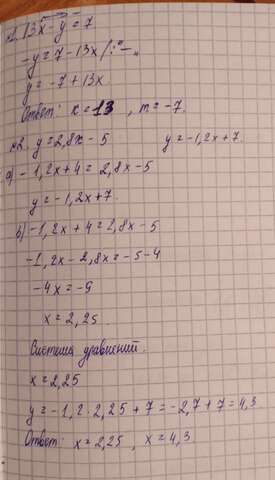 №1. 13x - y = 7
-y = 7 - 13x /:"-"
y = -7 + 13x
Ответ: к = 13, m = -7.
№2. y = 2,8x - 5 y = -1,2x + 7
а) -1,2x + 4 = 2,8x - 5
y = -1,2x + 7.
b) -1,2x + 4 = 2,8x - 5
-1,2x - 2,8x = -5 - 4
-4x = -9
x = 2,25
Система уравнений.
x = 2,25
y = -1,2 · 2,25 + 7 = -2,7 + 7 = 4,3
Ответ: x = 2,25, x = 4,3